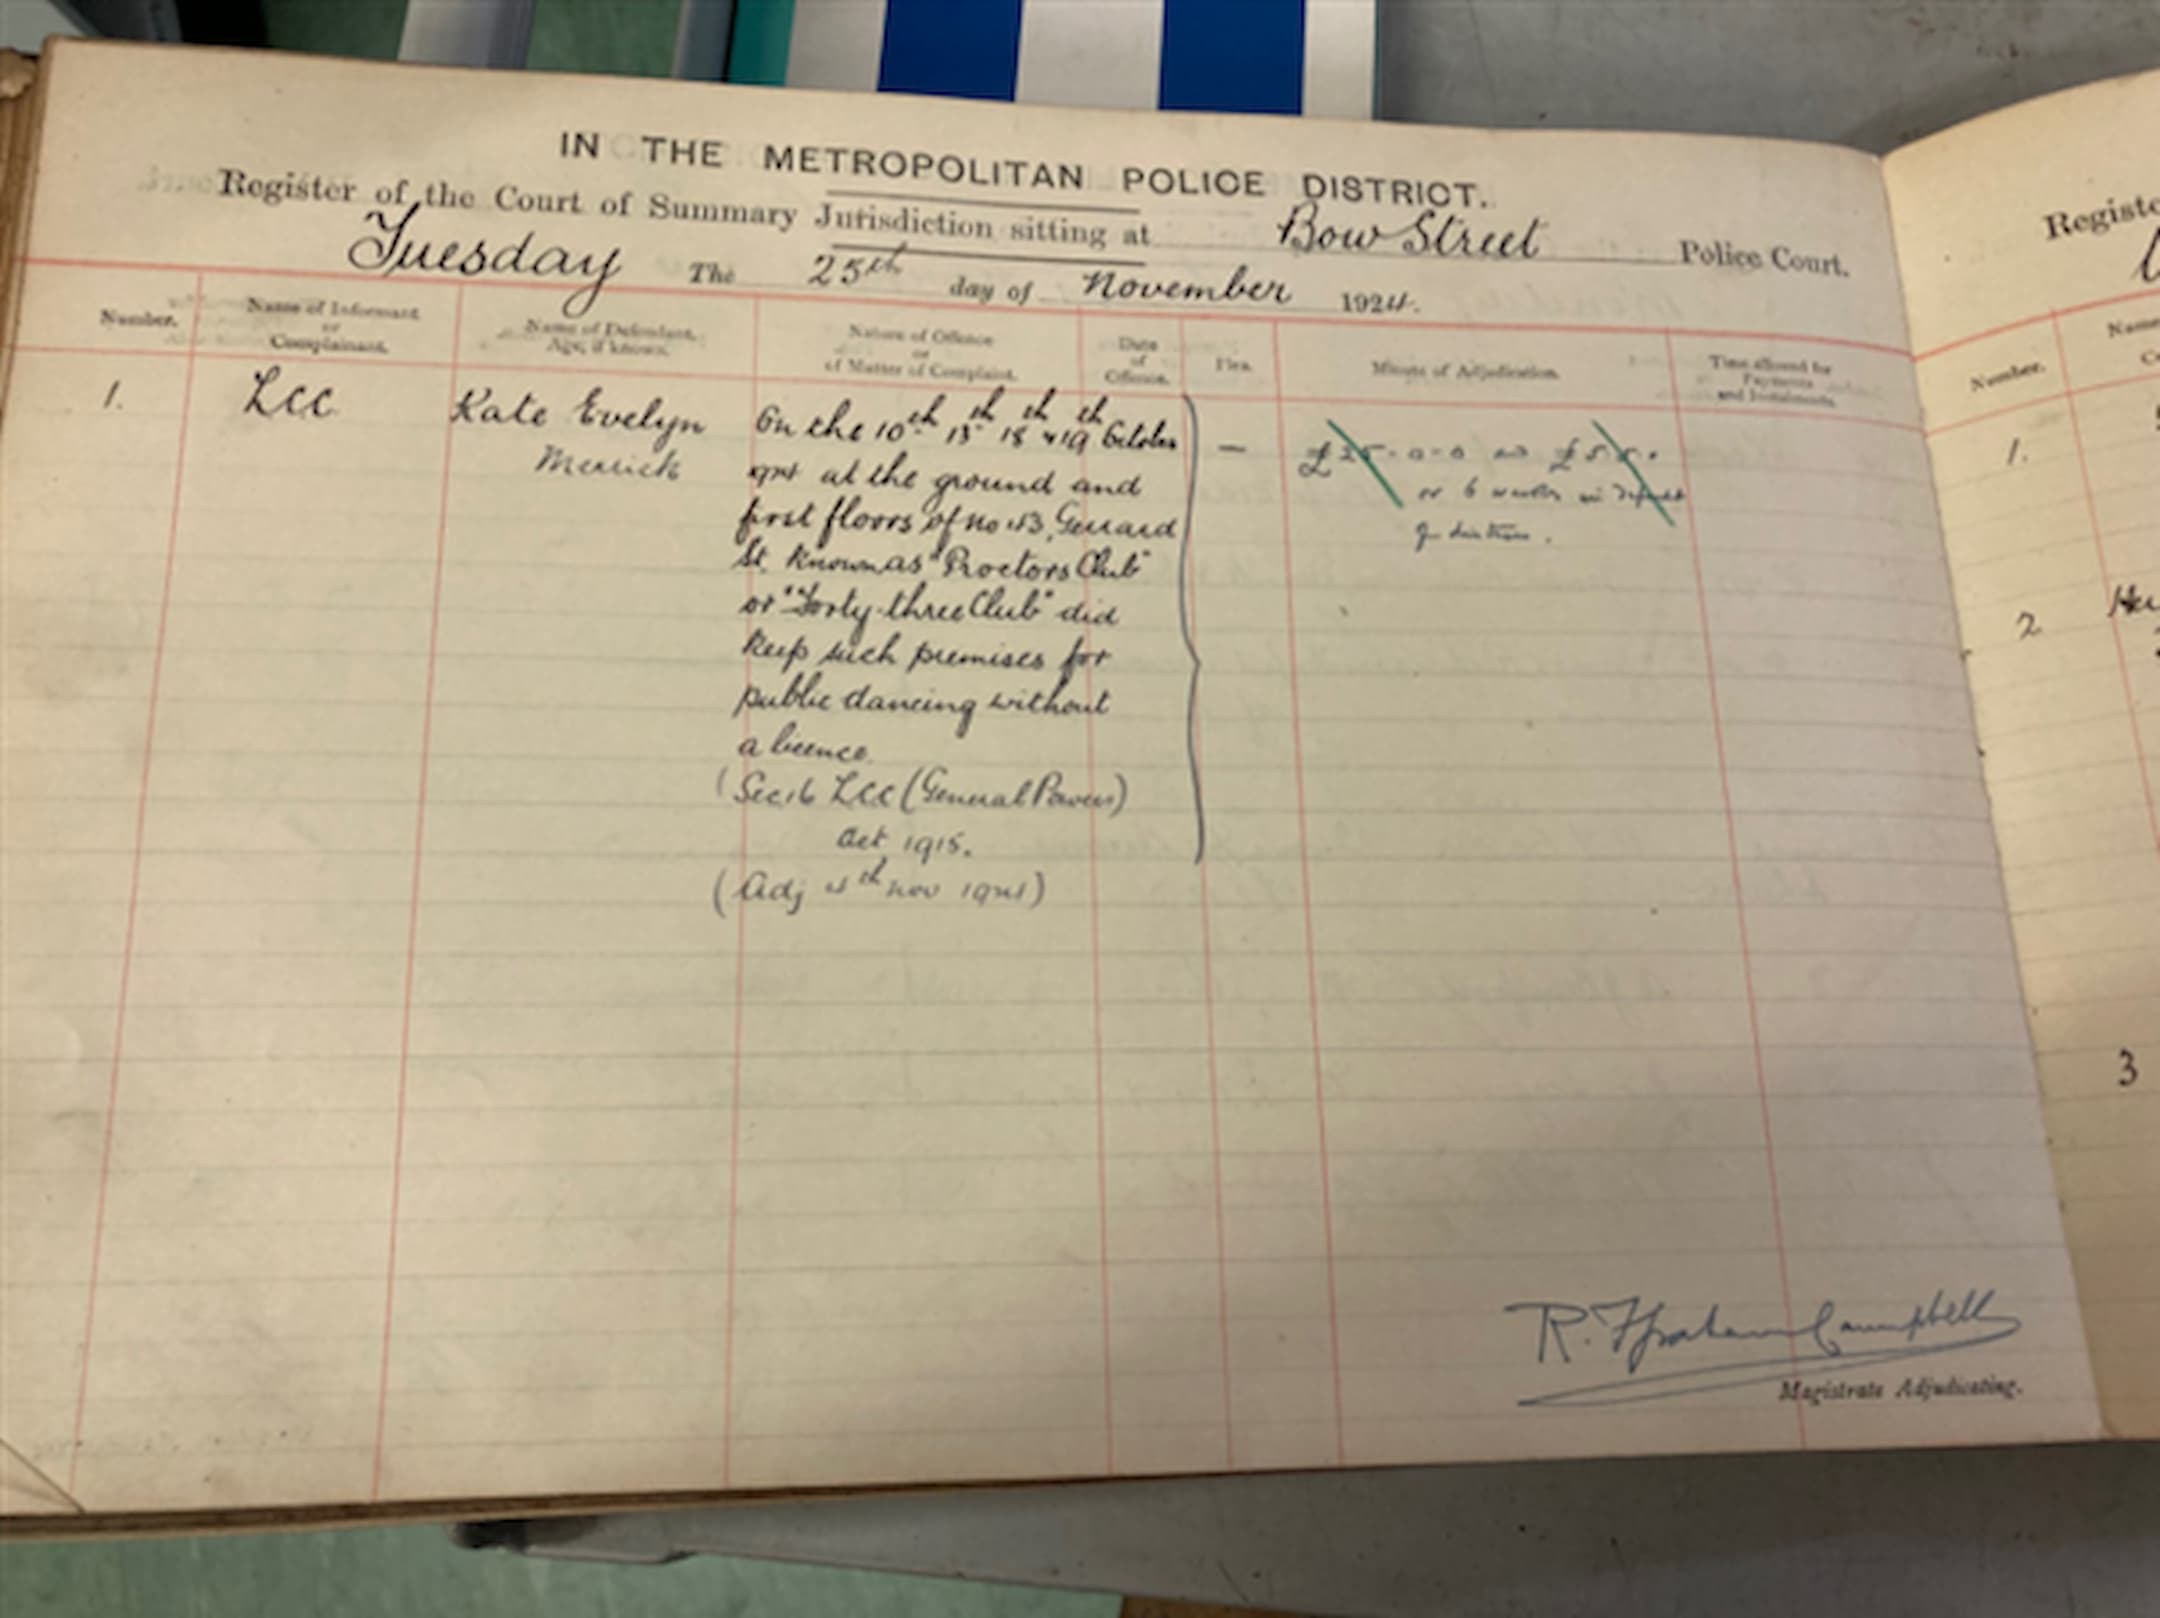 IN THE METROPOLITAN POLICE DISTRICT.
Register of the Court of Summary Jurisdiction sitting at Bow Street Police Court.
Tuesday The 25th day of November 1924.
Number.
Name of Informant
or
Complainant.
Name of Defendant.
Age, if known.
Nature of Offence
or
of Matter of Complaint.
Date
of
Offence.
Plea.
Minute of Adjudication.
Time allowed for
Payments
and Instalments.
1.
LCC
Kate Evelyn
Merrick
On the 10th 15th 18th & 19th October
1924 at the ground and
first floors of no 43, Gerrard
St. Known as "Proctors Club"
or "Forty-three Club" did
keep such premises for
public dancing without
a licence.
(Sec 16 LCC (General Powers)
Act 1915.
(Adj 4th Nov 1924)
—
£25-0-0 and £5 5.
or 6 weeks in default
of distress.
R. Graham Campbell
Magistrate Adjudicating.
Number.
1.
2
3